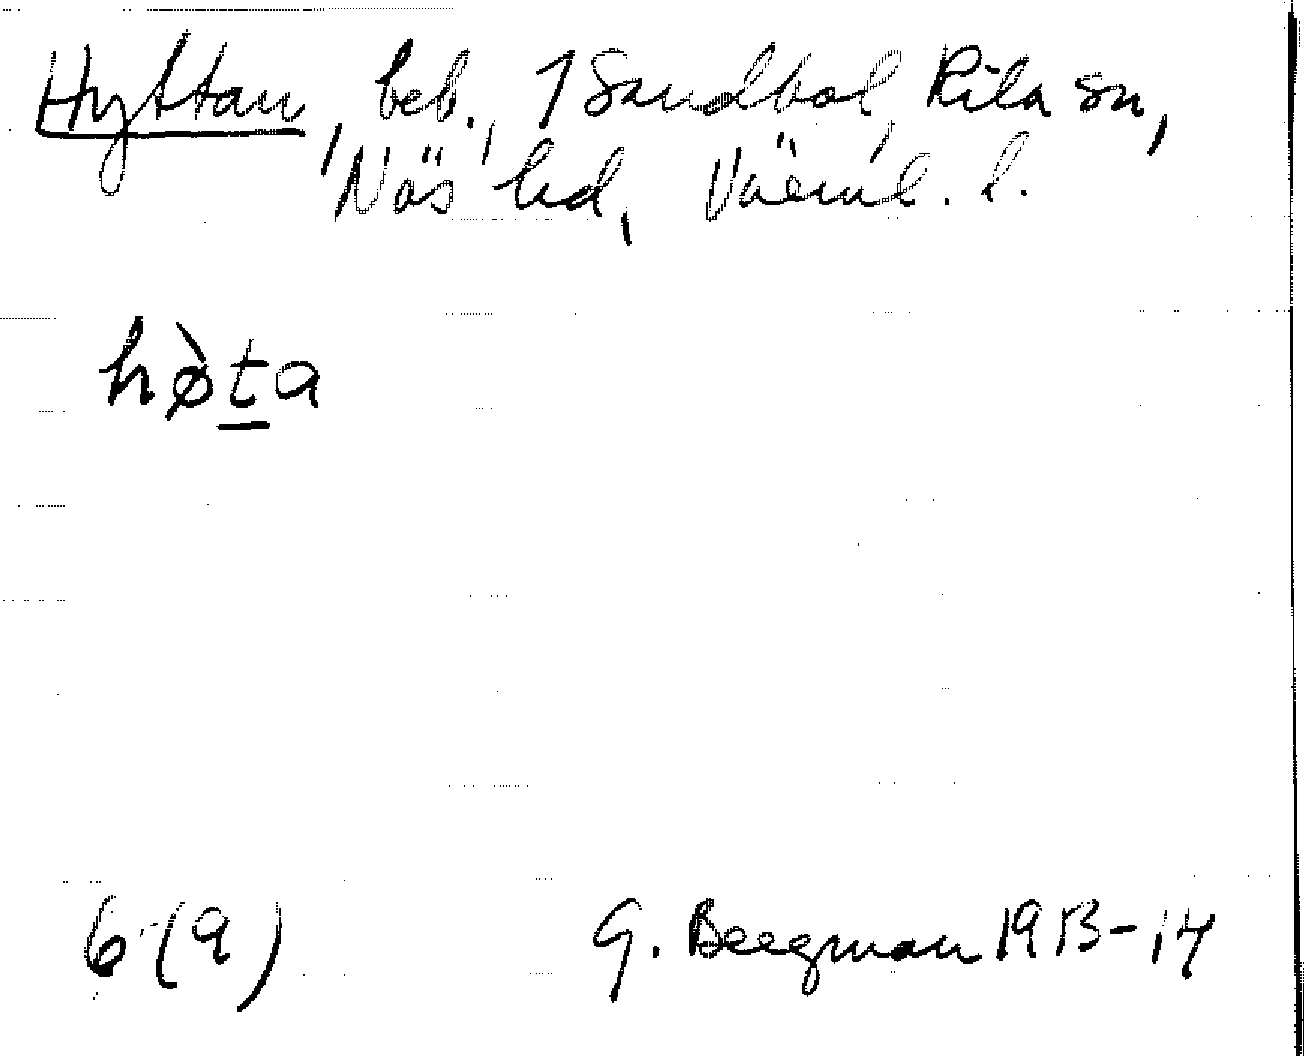 Hyttan, beb., 1 Sandbol, Rila sn,
Näs hd, Värml. l.
hø̀ṯa
6 (9)
G. Bergman 1913-14